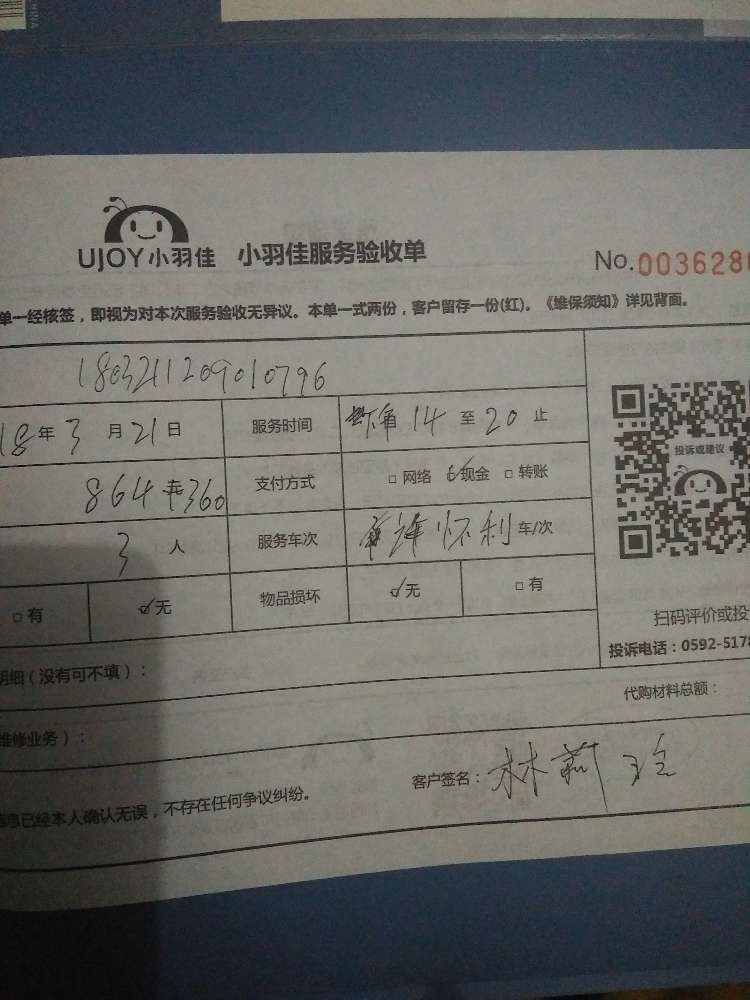 CHINA
UJOY小羽佳 小羽佳服务验收单 No.0036286
单一经核签，即视为对本次服务验收无异议。本单一式两份，客户留存一份(红)。《维保须知》详见背面。
1803211209010796
18年3月21日 服务时间 下午14至20止
864 360 支付方式 □网络 ☑现金 □转账
投诉或建议
3人 服务车次 车/次
□有 ☑无 物品损坏 ☑无 □有
扫码评价或投
明细（没有可不填）：
投诉电话：0592-5178
代购材料总额：
维修业务）：
信息已经本人确认无误，不存在任何争议纠纷。 客户签名：林莉玲